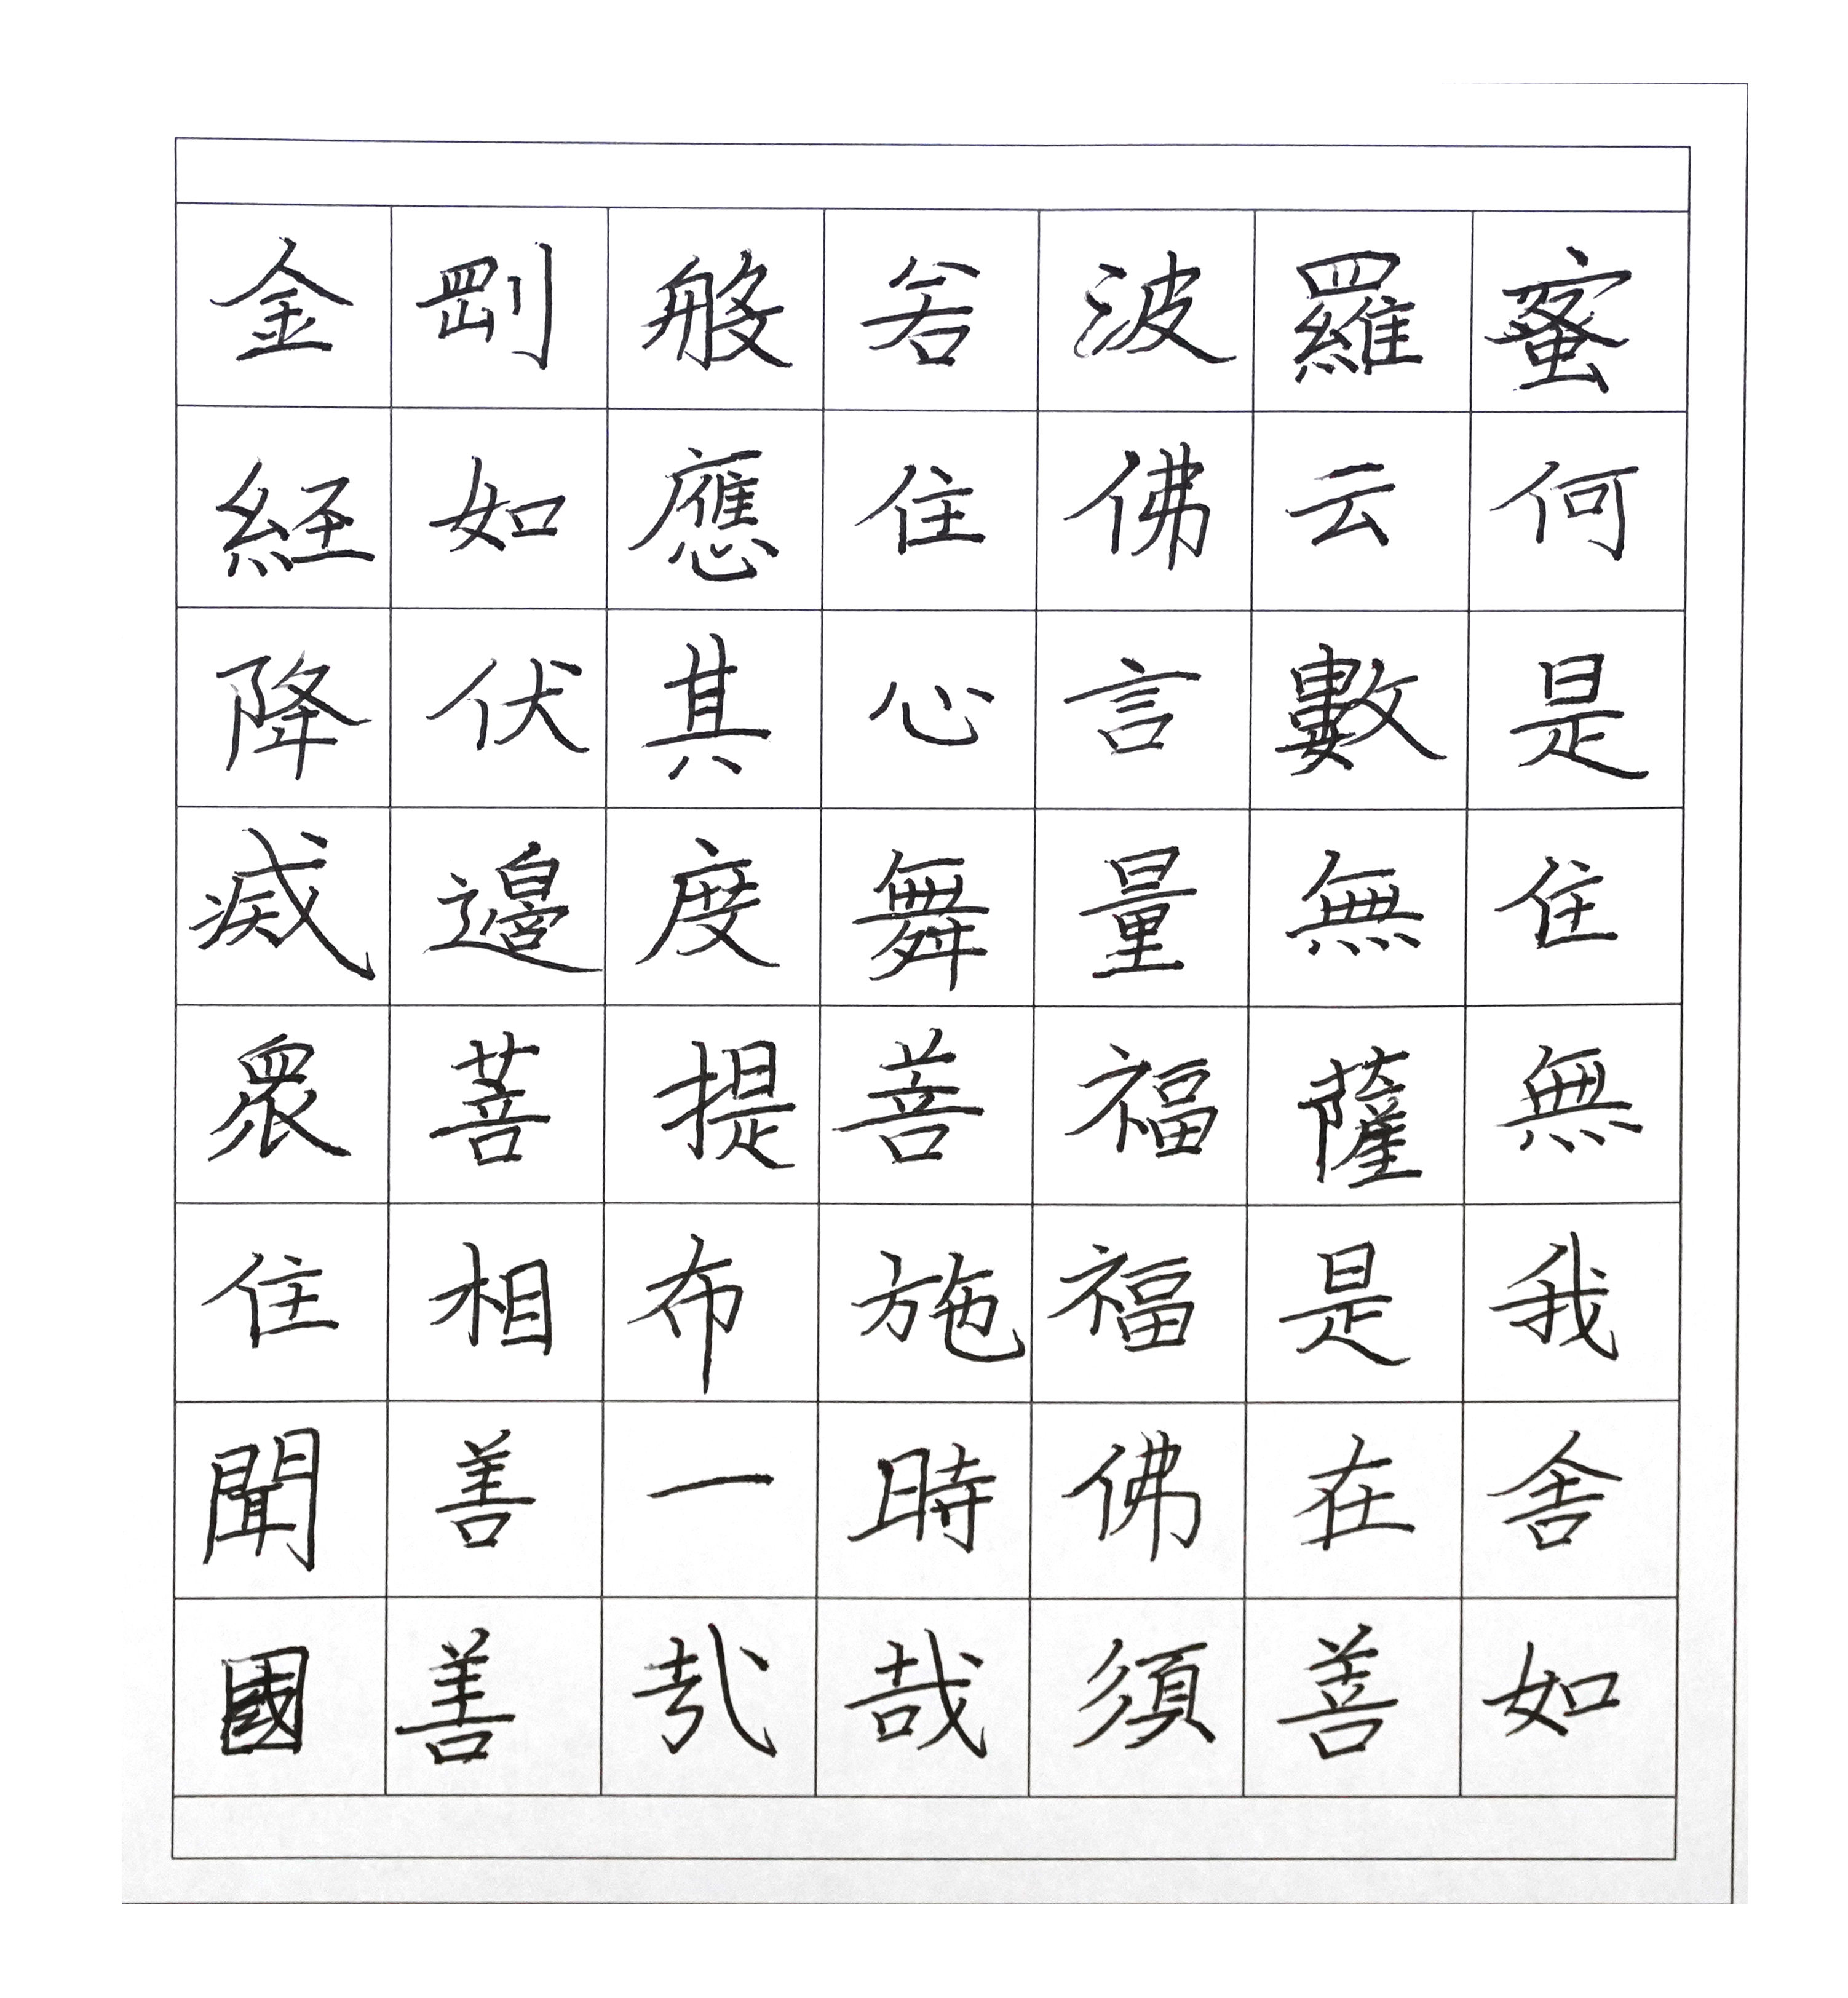 金剛般若波羅蜜
経如應住佛云何
降伏其心言數是
滅邊度舞量無住
眾菩提菩福薩無
住相布施福是我
聞善一時佛在舍
國善哉須善如